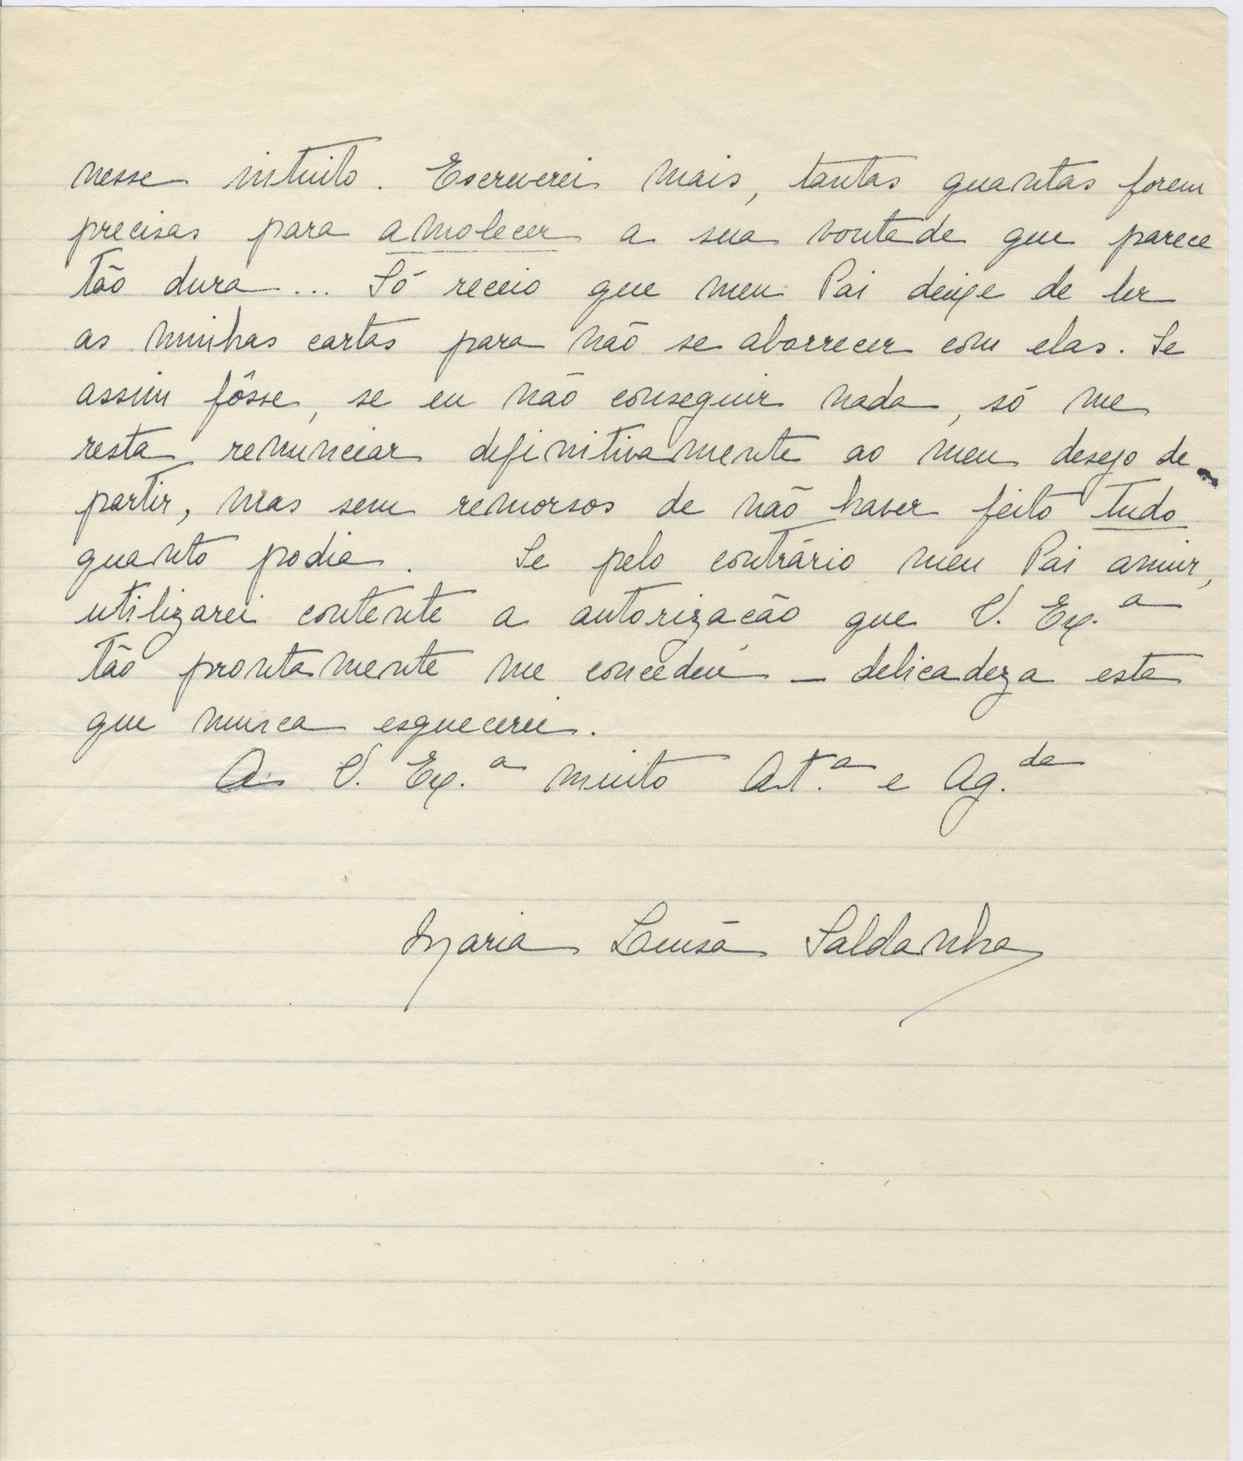 nesse intuito. Escreverei mais, tantas quantas forem
precisas para amolecer a sua vontade que parece
tão dura... Só receio que meu Pai deixe de ler
as minhas cartas para não se aborrecer com elas. Se
assim fôsse, se eu não conseguir nada, só me
resta renunciar definitivamente ao meu desejo de
partir, mas sem remorsos de não haver feito tudo
quanto podia. Se pelo contrário meu Pai anuir,
utilizarei contente a autorização que V. Ex.ª
tão prontamente me concedeu - delicadeza esta
que nunca esquecerei.
A V. Ex.ª muito At.ª e Ag.da
Maria Luísa Saldanha